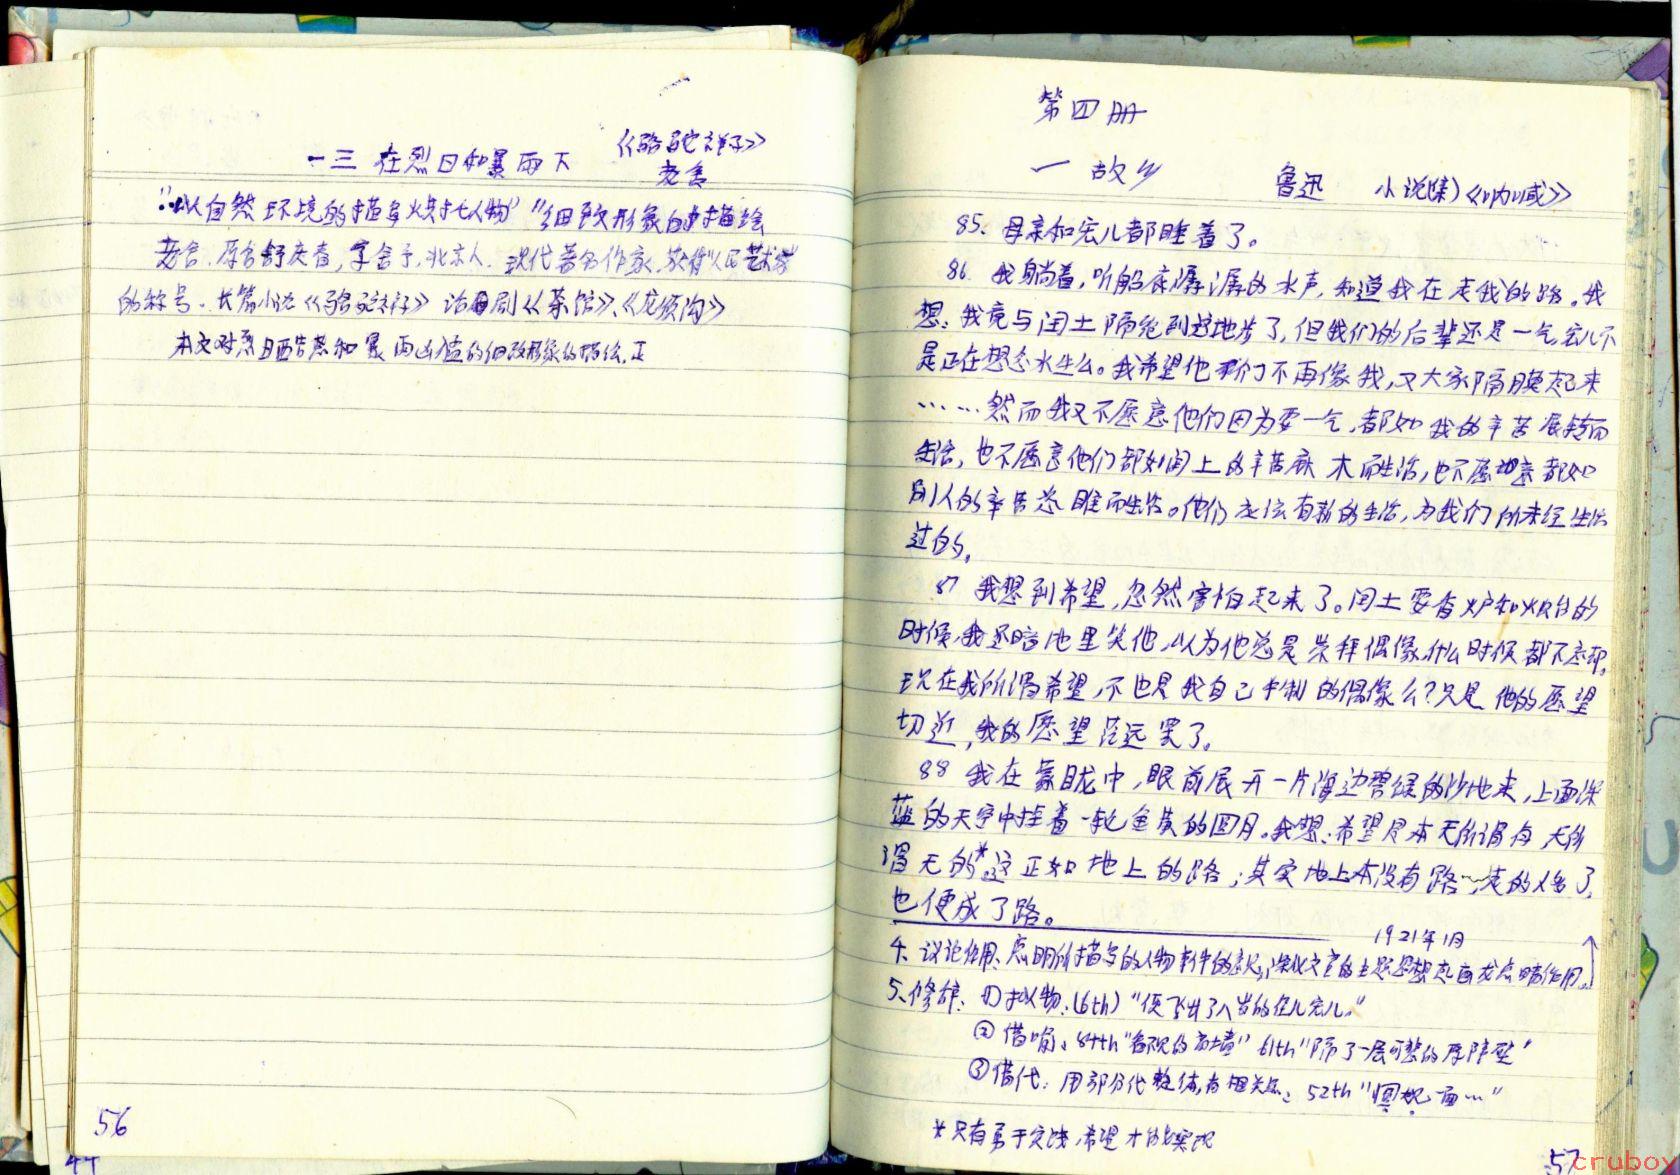 一三 在烈日和暴雨下
《骆驼祥子》
老舍
∵以自然环境的描写烘托人物" "细致形象的描绘
老舍.原名舒庆春,字舍予,北京人.现代著名作家.获得"人民艺术家
的称号.长篇小说《骆驼祥子》 话剧《茶馆》、《龙须沟》
本文对烈日酷热和暴雨凶猛的细致形象的描绘,正
56
44
第四册
一 故乡
鲁迅 小说(集)《呐喊》
85. 母亲和宏儿都睡着了。
86. 我躺着,听船底潺潺的水声,知道我在走我的路。我
想:我竟与闰土隔绝到这地步了,但我们的后辈还是一气,宏儿不
是正在想念水生么。我希望他们不再像我,又大家隔膜起来
……然而我又不愿意他们因为要一气,都如我的辛苦展转而
生活,也不愿意他们都如闰土的辛苦麻木而生活,也不愿意都如
别人的辛苦恣睢而生活。他们应该有新的生活,为我们所未经生活
过的。
87 我想到希望,忽然害怕起来了。闰土要香炉和烛台的
时候,我还暗地里笑他,以为他总是崇拜偶像,什么时候都不忘却。
现在我所谓希望,不也是我自己手制的偶像么?只是他的愿望
切近,我的愿望茫远罢了。
88 我在朦胧中,眼前展开一片海边碧绿的沙地来,上面深
蓝的天空中挂着一轮金黄的圆月。我想:希望是本无所谓有,无所
谓无的*。这正如地上的路;其实地上本没有路,走的人多了,
也便成了路。
1921年1月
4、议论作用、点明所描写的人物事件的意义,深化文章的主题思想起画龙点睛作用。
5、修辞: ①拟物:(6th)"便飞出了八岁的侄儿宏儿。"
②借喻:84th"看不见的高墙" 61th"隔了一层可悲的厚障壁"
③借代:用部分代整体,有相关点: 52th"圆规一面…"
*只有勇于实践,希望才能实现
57
cruboy